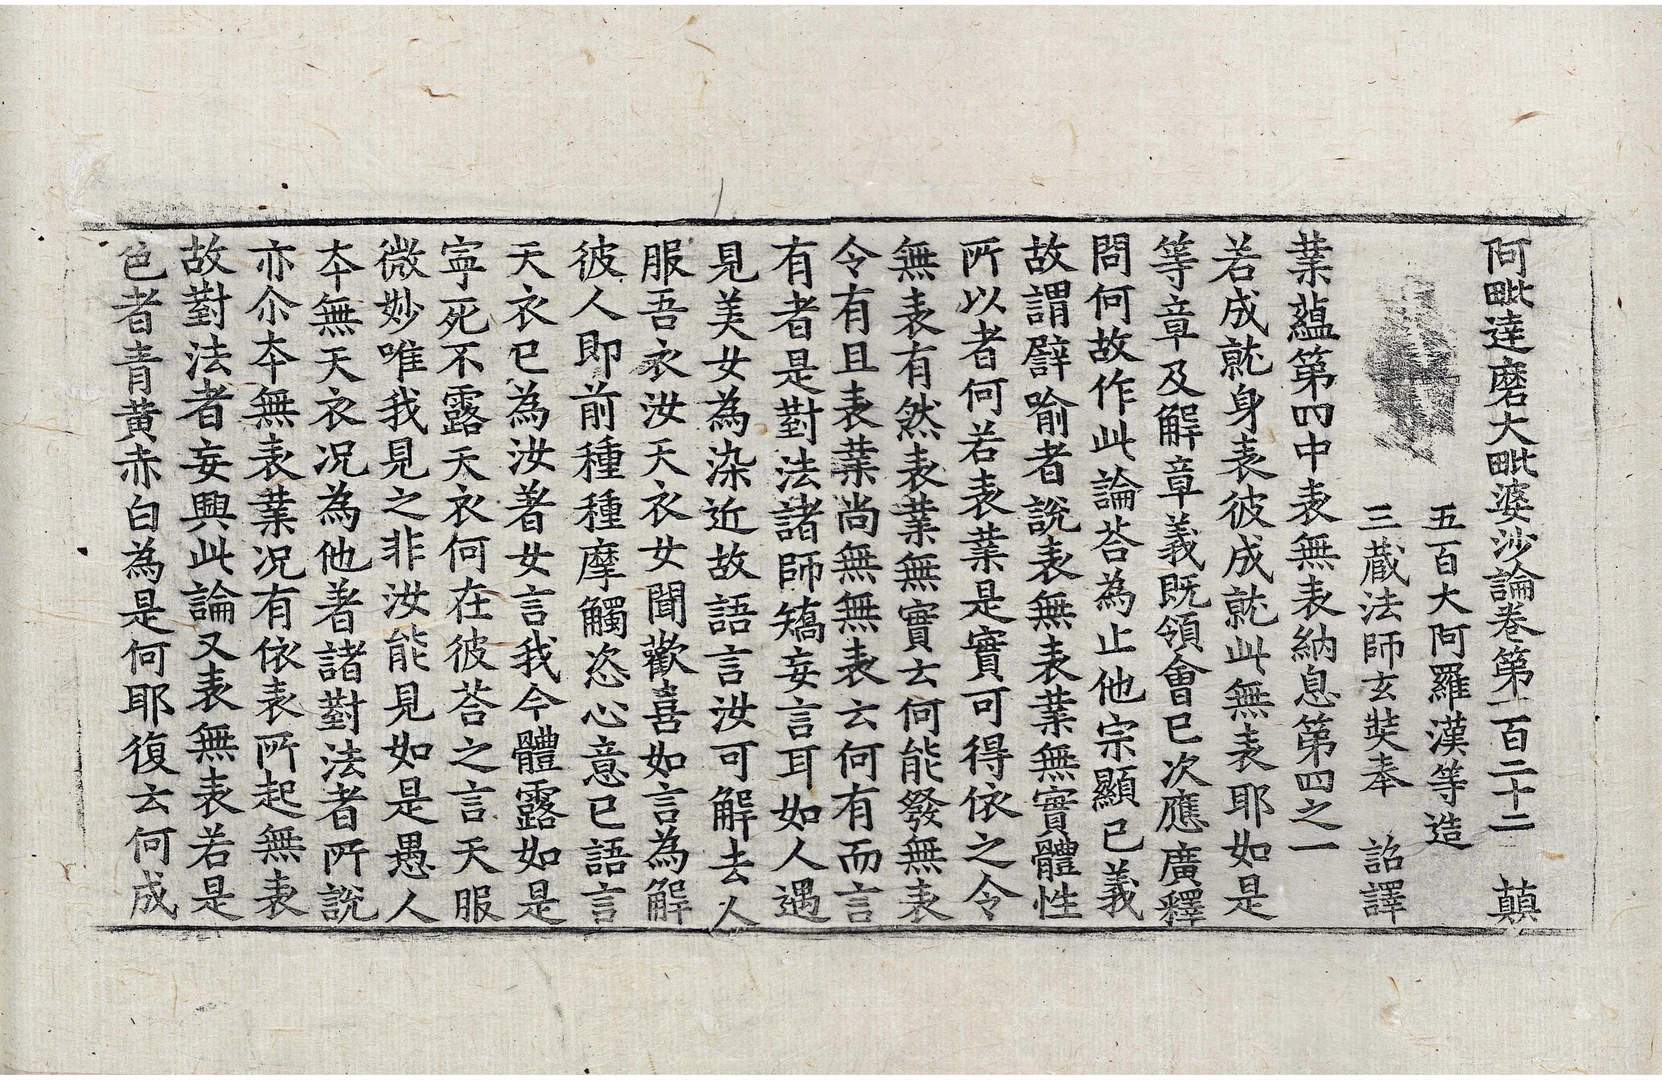 阿毗達磨大毗婆沙論卷第一百二十二 顛
五百大阿羅漢等造
三藏法師玄奘奉 詔譯
業蘊第四中表無表納息第四之一
若成就身表彼成就此無表耶如是
等章及解章義既領會已次應廣釋
問何故作此論荅為止他宗顯已義
故謂譬喻者說表無表業無實體性
所以者何若表業是實可得依之令
無表有然表業無實云何能發無表
令有且表業尚無無表云何有而言
有者是對法諸師矯妄言耳如人遇
見美女為染近故語言汝可解去人
服吾衣汝天衣女聞歡喜如言為解
彼人即前種種摩觸恣心意已語言
天衣已為汝著女言我今體露如是
寧死不露天衣何在彼荅之言天服
微妙唯我見之非汝能見如是愚人
本無天衣况為他著諸對法者所說
亦尒本無表業况有依表所起無表
故對法者妄興此論又表無表若是
色者青黃赤白為是何耶復云何成